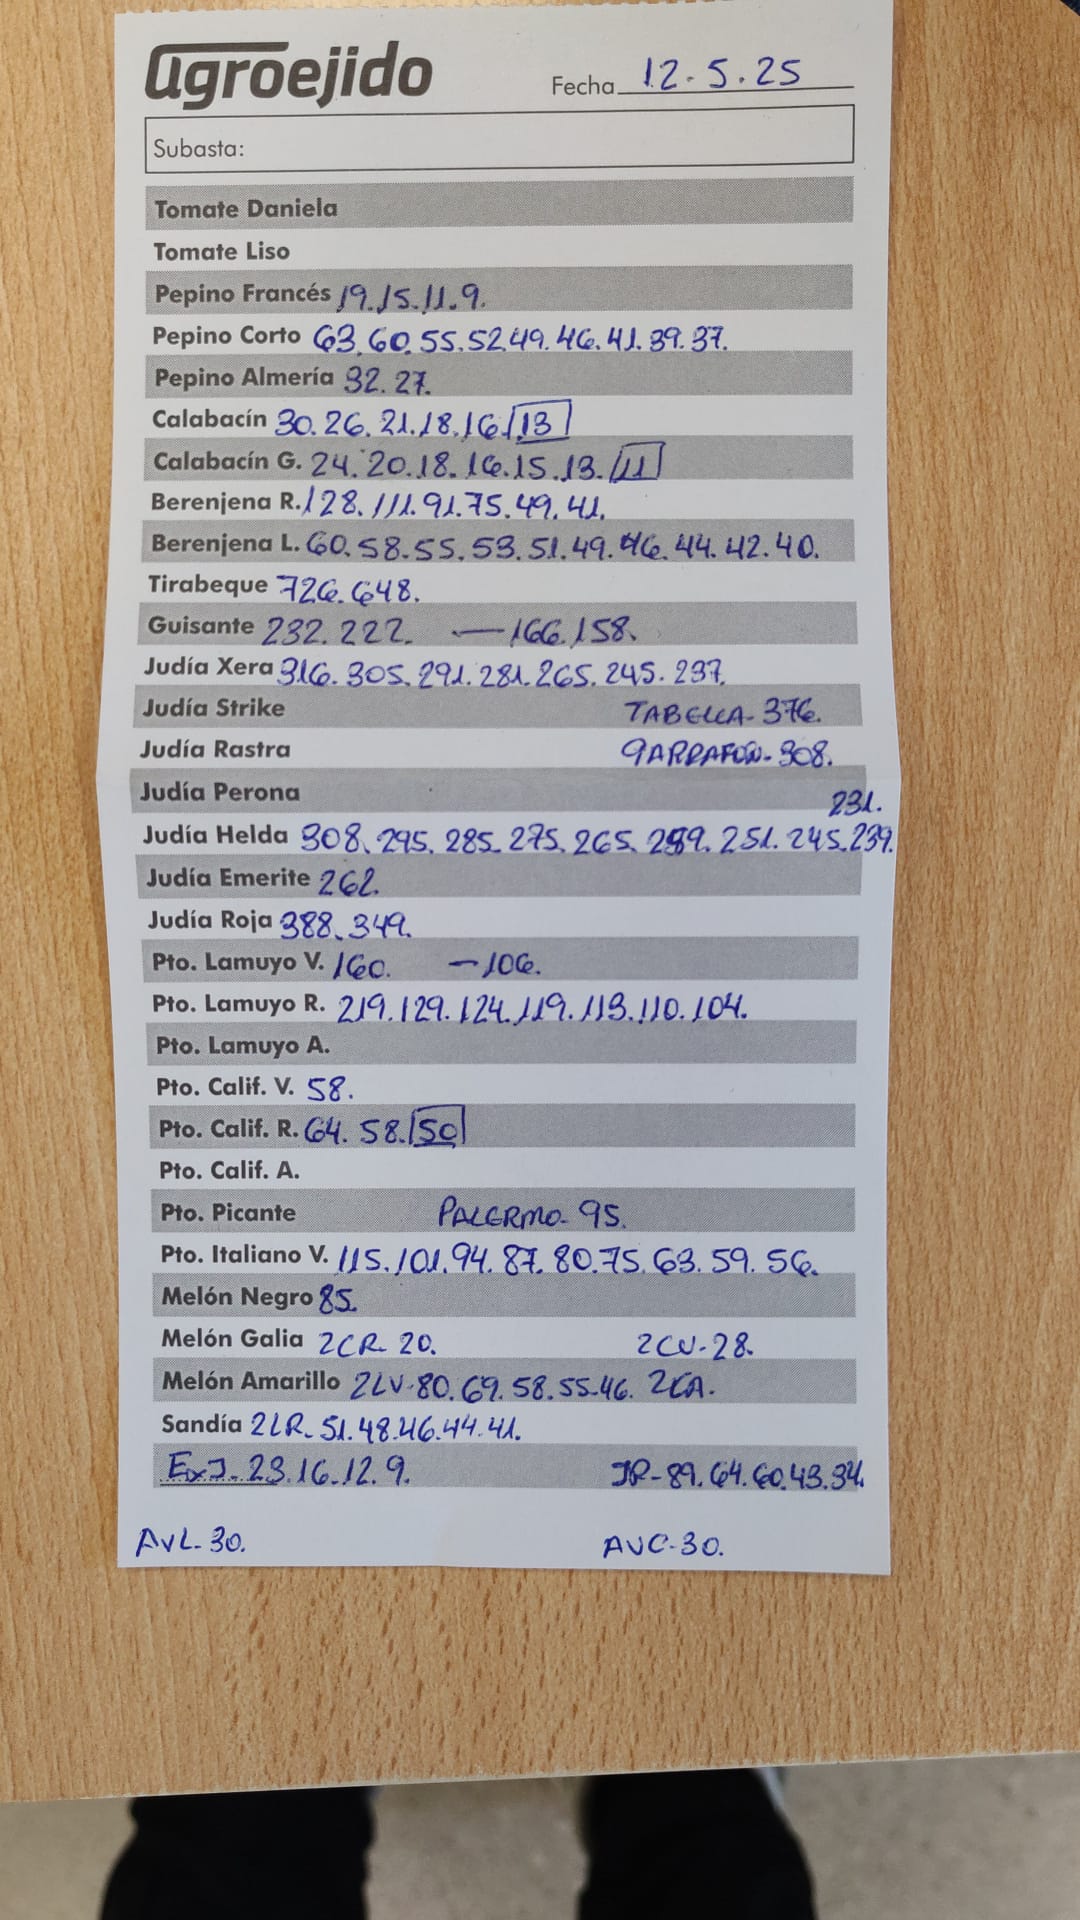 agroejido
Fecha 12.5.25
Subasta:
Tomate Daniela
Tomate Liso
Pepino Francés 19.15.11.9.
Pepino Corto 63.60.55.52.49.46.41.39.37.
Pepino Almería 32.27.
Calabacín 30.26.21.18.16.13
Calabacín G. 24.20.18.16.15.13.11
Berenjena R. 128.111.91.75.49.41.
Berenjena L. 60.58.55.53.51.49.46.44.42.40.
Tirabeque 726.648.
Guisante 232.222. —166.158.
Judía Xera 316.305.291.281.265.245.237.
Judía Strike TABELLA-376.
Judía Rastra GARRAFON-308.
Judía Perona
231.
Judía Helda 308.295.285.275.265.259.251.245.239.
Judía Emerite 262.
Judía Roja 388.349.
Pto. Lamuyo V. 160. —106.
Pto. Lamuyo R. 219.129.124.119.113.110.104.
Pto. Lamuyo A.
Pto. Calif. V. 58.
Pto. Calif. R. 64.58.50
Pto. Calif. A.
Pto. Picante PALERMO-95.
Pto. Italiano V. 115.101.94.87.80.75.63.59.56.
Melón Negro 85.
Melón Galia 2CR-20. 2CV-28.
Melón Amarillo 2LV-80.69.58.55.46. 2CA.
Sandía 2LR-51.48.46.44.41.
ExJ-23.16.12.9. JP-89.64.60.43.34.
AVL-30. AVC-30.